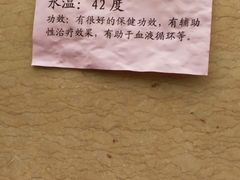 水温：42 度
功效：有很好的保健功效，有辅助
性治疗效果，有助于血液循环等。